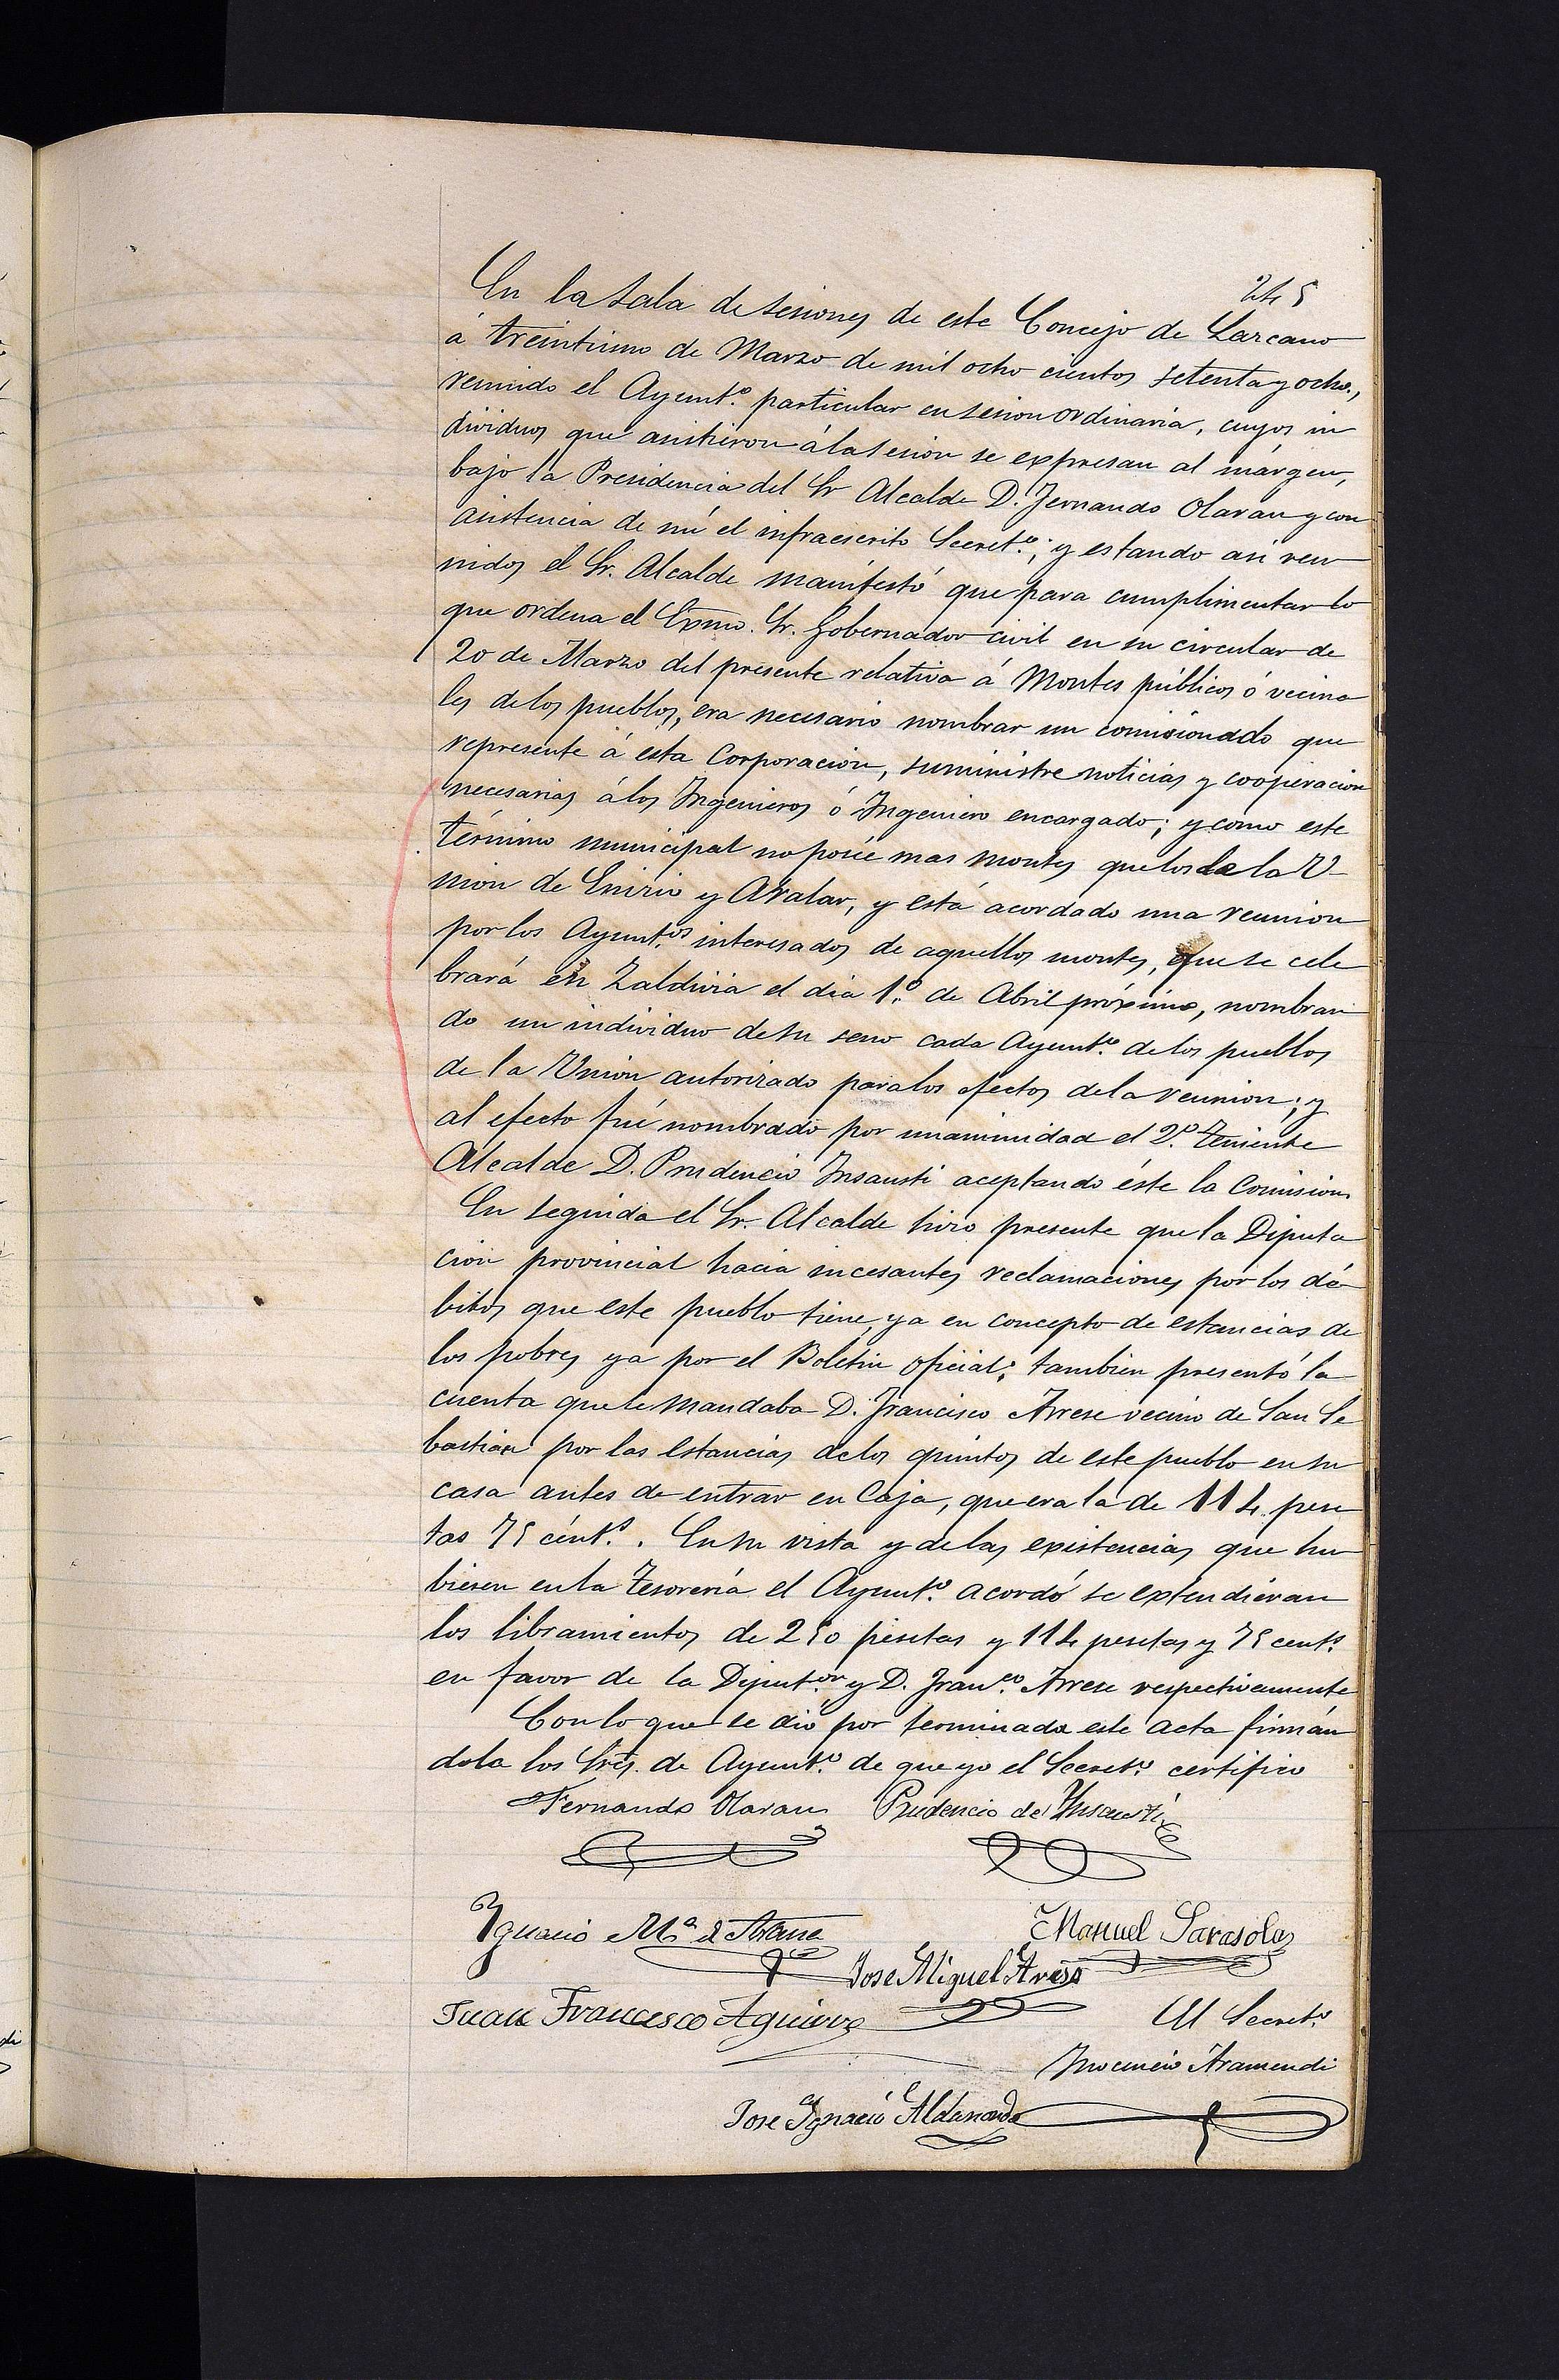 245
En la Sala de Sesiones de este Concejo de Lazcano
á treintiuno de Marzo de mil ocho cientos setenta y ocho,
reunido el Ayunt.º particular en sesion ordinaria, cuyos in
dividuos que asistieron á la sesion se expresan al márgen,
bajo la Presidencia del Sr Alcalde D. Fernando Olaran y con
asistencia de mí el infraescrito Secret.º; y estando asi reu
nidos el Sr. Alcalde manifestó que para cumplimentar lo
que ordena el Exmo. Sr. Gobernador civil en su circular de
20 de Marzo del presente relativa á Montes públicos ó vecina
les de los pueblos, era necesario nombrar un comisionado que
represente á esta Corporacion, suministre noticias y cooperacion
necesarias á los Ingenieros ó Ingeniero encargado; y como este
término municipal no posée mas montes que los de la U-
nion de Enirio y Aralar, y está acordado una reunion
por los Ayunt.os interesados de aquellos montes, que se cele
brará en Zaldivia el dia 1.º de Abril próximo, nombran
do un individuo de su seno cada Ayunt.º de los pueblos
de la Union autorizado para los efectos de la reunion; y
al efecto fué nombrado por unanimidad el 2.º Teniente
Alcalde D. Prudencio Insausti aceptando éste la Comision.
En seguida el Sr. Alcalde hizo presente que la Diputa
cion provincial hacia incesantes reclamaciones por los dé
bitos que este pueblo tiene, ya en concepto de estancias de
los pobres ya por el Boletin oficial; tambien presentó la
cuenta que le mandaba D. Francisco Arrese vecino de San Se
bastian por las estancias de los quintos de este pueblo en su
casa antes de entrar en Caja, que era la de 114 pese
tas 75 cént.s. En su vista y de las existencias que hu
biesen en la Tesorería el Ayunt.º acordó se extendieran
los libramientos de 250 pesetas y 114 pesetas y 75 cent.s
en favor de la Diput.on y D. Fran.co Arrese respectivamente
Con lo que se dió por terminada este acta firmán
dola los Sres. de Ayunt.º de que yo el Secret.º certifico
Fernando Olaran Prudencio de Insausti
Ignacio M.ª de Manuel Sarasola
Jose Miguel
Juan Francisco Aguirre El Secret.º
Inocencio Aramendi
Jose Ignacio Aldanondo